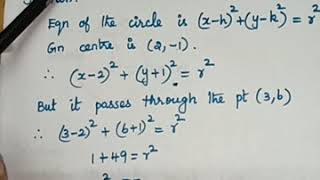 Eqn of the circle is (x-h)²+(y-k²) = r²
Gn centre is (2,-1).
∴ (x-2)² + (y+1)² = r²
But it passes through the pt (3,6)
∴ (3-2)² + (6+1)² = r²
1+49 = r²